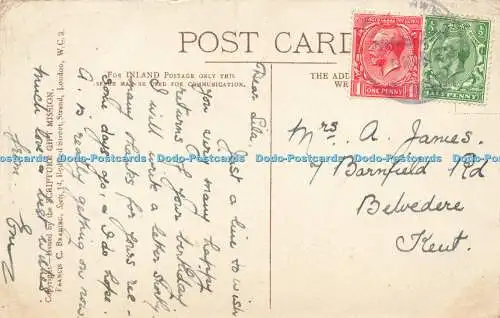 POST CARD
FOR INLAND POSTAGE ONLY THIS
SPACE MAY BE USED FOR COMMUNICATION.
THE ADD
WR
ONE PENNY
Dear Lila,
Just a line to wish
you very many happy
returns of your birthday
I will write a letter shortly.
many thanks for yours rec-
some days ago, & I do hope
A. is really getting on now
much love & best wishes
from
Mrs A. James.
7 Barnfield Rd
Belvedere
Kent.
Copyright. Issued by the SCRIPTURE GIFT MISSION,
FRANCIS C. BRADING, Sec., 14, Bedford Street, Strand, London, W.C. 2.
Dodo-Postcards Dodo-Postcards Dodo-Postcards Dodo-Postcards Dodo-Postcards